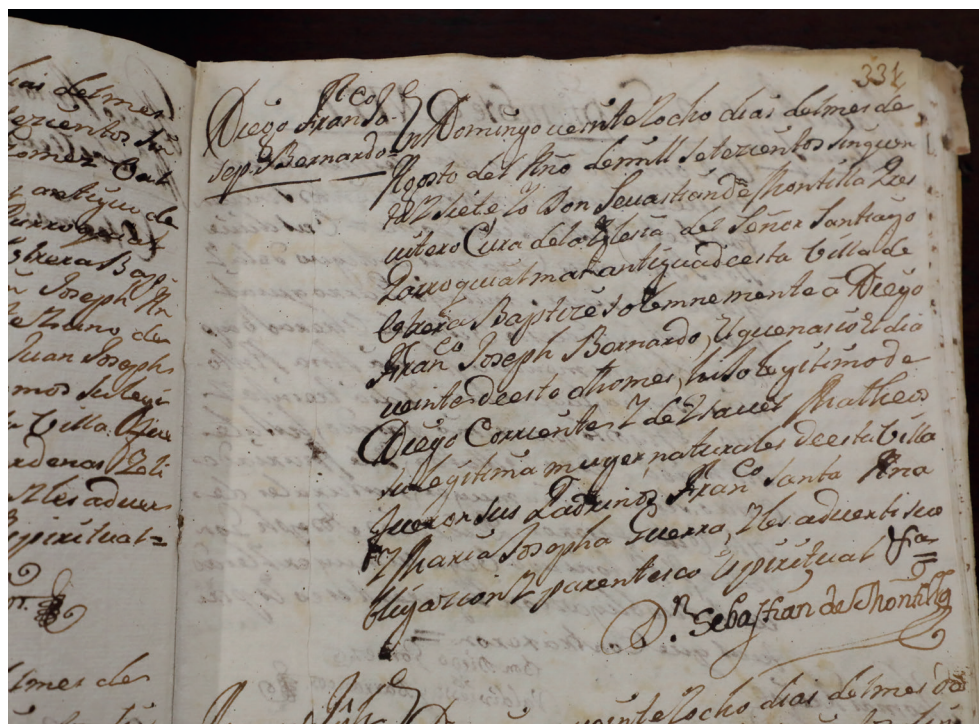 ias delmes
tezientos
Gomez
antiguo de
Parroquial
Cabrera Bap
Joseph
de
Juan Joseph
mos su legi
Villa.
rdenas
les aduer
spiritual=
331
Diego Fran.co Jo
sep. Bernardo
En Domingo veinte Y ocho dias del mes de
Agosto del Año de mill setezientos sinquen
ta Y siete Yo Don Sevastian de Montilla Pres
vitero Cura de la Yglesia del Señor Santiago
Parroquial mas antigua de esta Villa de
Utrera Baptizé Solemnemente â Diego
Fran.co Joseph Bernardo, que nasio el dia
veinte de este dho mes, hijo legitimo de
Diego Corrientes Y de Ysavel Matheos
su legitima muger, naturales de esta Villa
fueron sus Padrinos Fran.co Santa Ana
Y Maria Josepha Guerra, Y les adverti su o
bligazion Y parentesco Spiritual
D.n Sebastian de Montilla
lmes de
veinte Y ocho dias del mes de